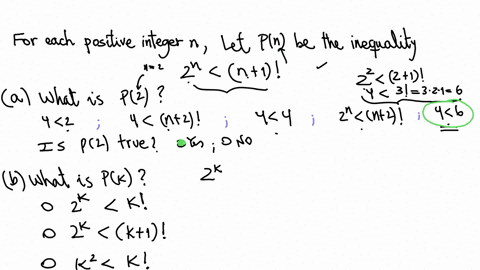 For each positive integer n, Let P(n) be the inequality
n=2
2^n < (n+1)! ✓
2^2 < (2+1)!
4 < 3! = 3·2·1 = 6
(a) What is P(2)?
4<2 ; 4 < (n+2)! ; 4<4 ; 2^n < (n+2)! ; 4<6
Is P(2) true? Yes ; O No
(b) What is P(k)? 2^k
O 2^k < k!
O 2^k < (k+1)!
O k^2 < k!